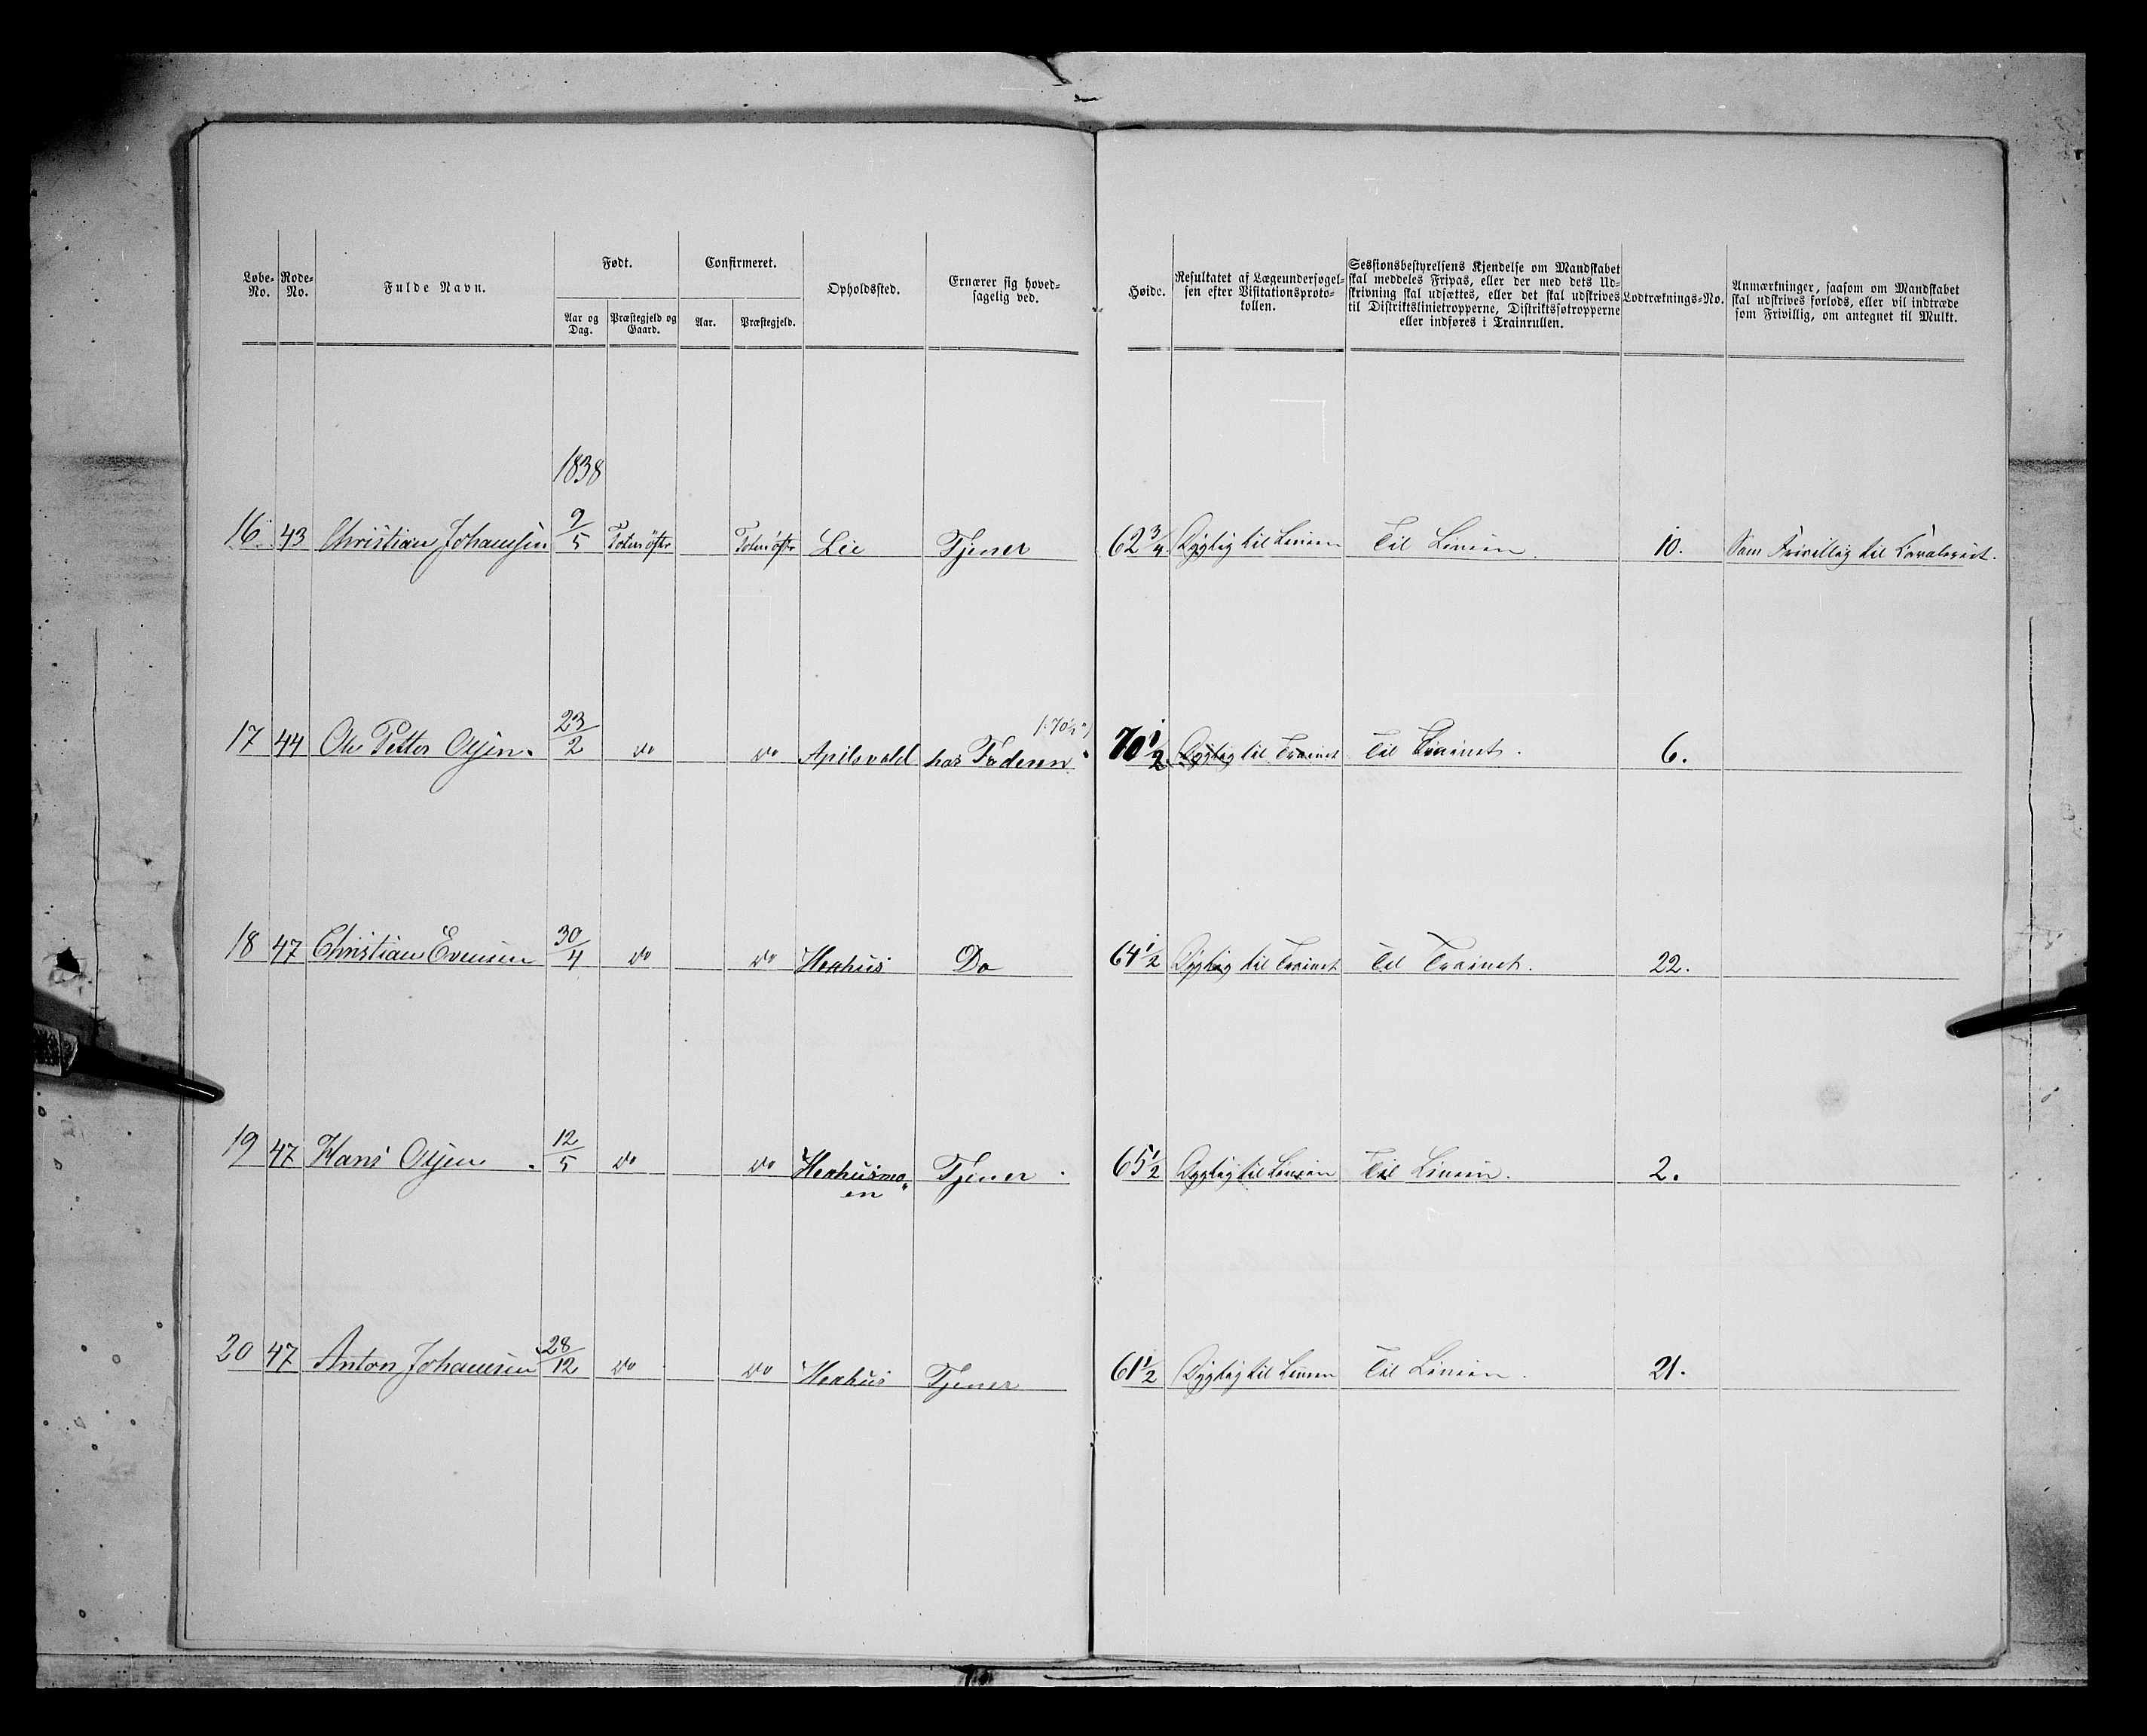 Løbe-No. Rode-No. Fulde Navn. Født. Confirmeret. Opholdssted. Ernærer sig hovedsagelig ved. Høide. Resultatet af Lægeundersøgelsen efter Visitationsprotokollen. Sessionsbestyrelsens Kjendelse om Mandskabet skal meddeles Fripas, eller der med dets Udskrivning skal udsættes, eller det skal udskrives til Distriktslinietropperne, Distriktssøtropperne eller indføres i Trainrullen. Lodtræknings-No. Anmærkninger, saasom om Mandskabet skal udskrives forlods, eller vil indtræde som Frivillig, om antegnet til Mulkt.
Aar og Dag. Præstegjeld og Gaard. Aar. Præstegjeld.
1838
16 43 Christian Johansen 9/5 Toten østr Toten østr Lie Tjener 62 3/4 Dygtig til Linien Til Linien. 10. Som Frivillig til Cavaleriet.
(:70½":)
17 44 Ole Petter Olsen. 23/2 do do Apilsvold hos Faderen 70 1/2 Dygtig til Trainet Til Trainet. 6.
18 47 Christian Evensen 30/4 do do Hexhus Do 64 1/2 Dygtig til Trainet Til Trainet. 22.
19 47 Hans Olsen. 12/5 do do Hexhusmoen Tjener. 65 1/2 Dygtig til Linien Til Linien. 2.
20 47 Anton Johansen 28/12 do do Hexhus Tjener 61 1/2 Dygtig til Linien Til Linien. 21.